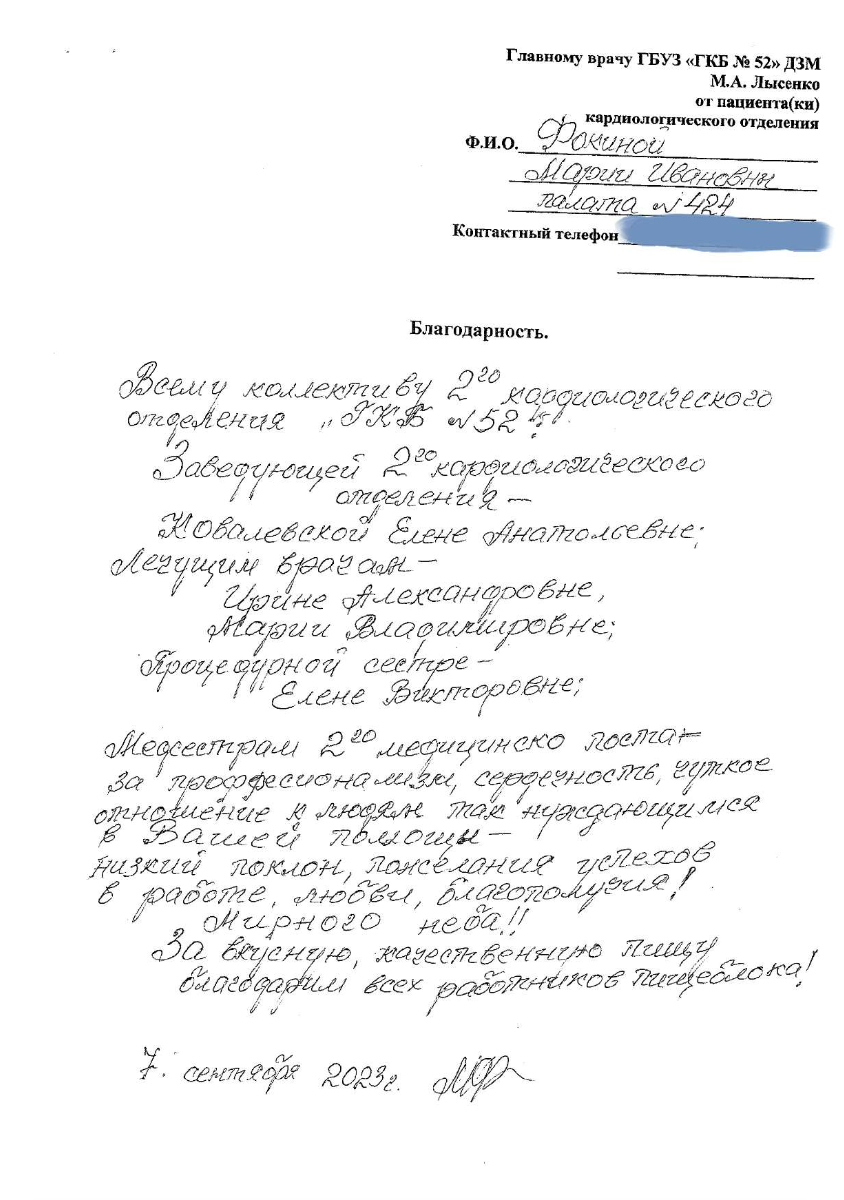 Главному врачу ГБУЗ «ГКБ № 52» ДЗМ
М.А. Лысенко
от пациента(ки)
кардиологического отделения
Ф.И.О. Фокиной
Марии Ивановны
палата №424
Контактный телефон
Благодарность.
Всему коллективу 2го кардиологического
отделения „ГКБ №52":
Заведующей 2го кардиологического
отделения –
Ковалевской Елене Анатольевне;
Лечущим врачам –
Ирине Александровне,
Марии Владимировне;
Процедурной сестре –
Елене Викторовне;
Медсестрам 2го медицинско поста –
за професионализм, сердечность, чуткое
отношение к людям так нуждающимся
в Вашей помощи –
низкий поклон, пожелания успехов
в работе, любви, благополучия!
Мирного неба!!
За вкусную, качественную пищу
благодарим всех работников пищеблока!
7. сентября 2023г.